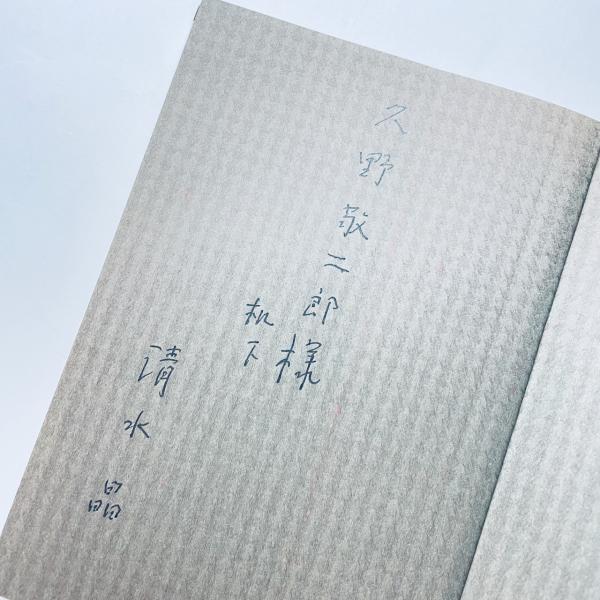 久野敬二郎様
机下
清水晶